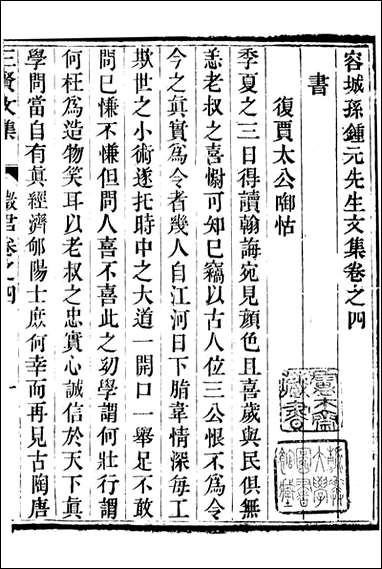 容城孫鍾元先生文集卷之四
書
復賈太公卹怙
季夏之三日得讀翰誨宛見顏色且喜歲與民俱無
恙老叔之喜慰可知已竊以古人位三公恨不爲令
今之眞實爲令者幾人自江河日下脂韋情深每工
欺世之小術遂托時中之大道一開口一舉足不敢
問已慊不慊但問人喜不喜此之幼學謂何壯行謂
何枉爲造物笑耳以老叔之忠實心誠信於天下眞
學問當自有眞經濟郇陽士庶何幸而再見古陶唐
三賢文集
徵君卷之四
一
大學
圖書
館藏